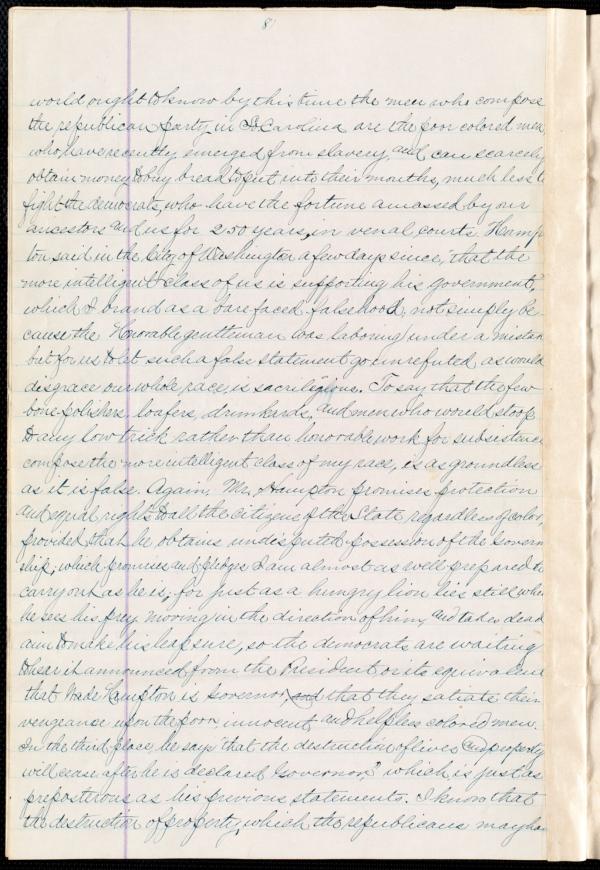 8
world ought to know by this time the men who compose
the republican party in So. Carolina are the poor colored men
who have recently emerged from slavery, and can scarcely
obtain money to buy bread to put into their mouths, much less to
fight the democrats, who have the fortune amassed by our
ancestors and us for 250 years, in venal courts. Hamp
ton said in the City of Washington a few days since, "that the
more intelligent class of us is supporting his government,
which I brand as a bare faced falsehood, not simply be
cause the Honorable gentleman was laboring under a mistak
but for us to let such a false statement go unrefuted as would
disgrace our whole race, is sacriligious. To say that the few
bone polishers, loafers, drunkards, and men who would stoop
to any low trick rather than honorable work for subsistence
compose the more intelligent class of my race, is as groundless
as it is false. Again, Mr. Hampton promises protection
and equal rights to all the citizens of the State regardless of color,
provided that he obtains undisputed possession of the Govern
ship, which promises and pledges I am almost as well prepared to
carry out as he is, for just as a hungry lion lies still when
he sees his prey moving in the direction of him, and takes dead
aim to make his leap sure, so the democrats are waiting
to hear it announced from the President or its equivalent
that Wade Hampton is Governor, and that they satiate their
vengeance upon the poor, innocent and helpless colored men.
In the third place, he says "that the destruction of lives and property
will cease after he is declared Governor" which is just as
preposterous as his previous statements. I know that
the destruction of property, which the republicans may ha